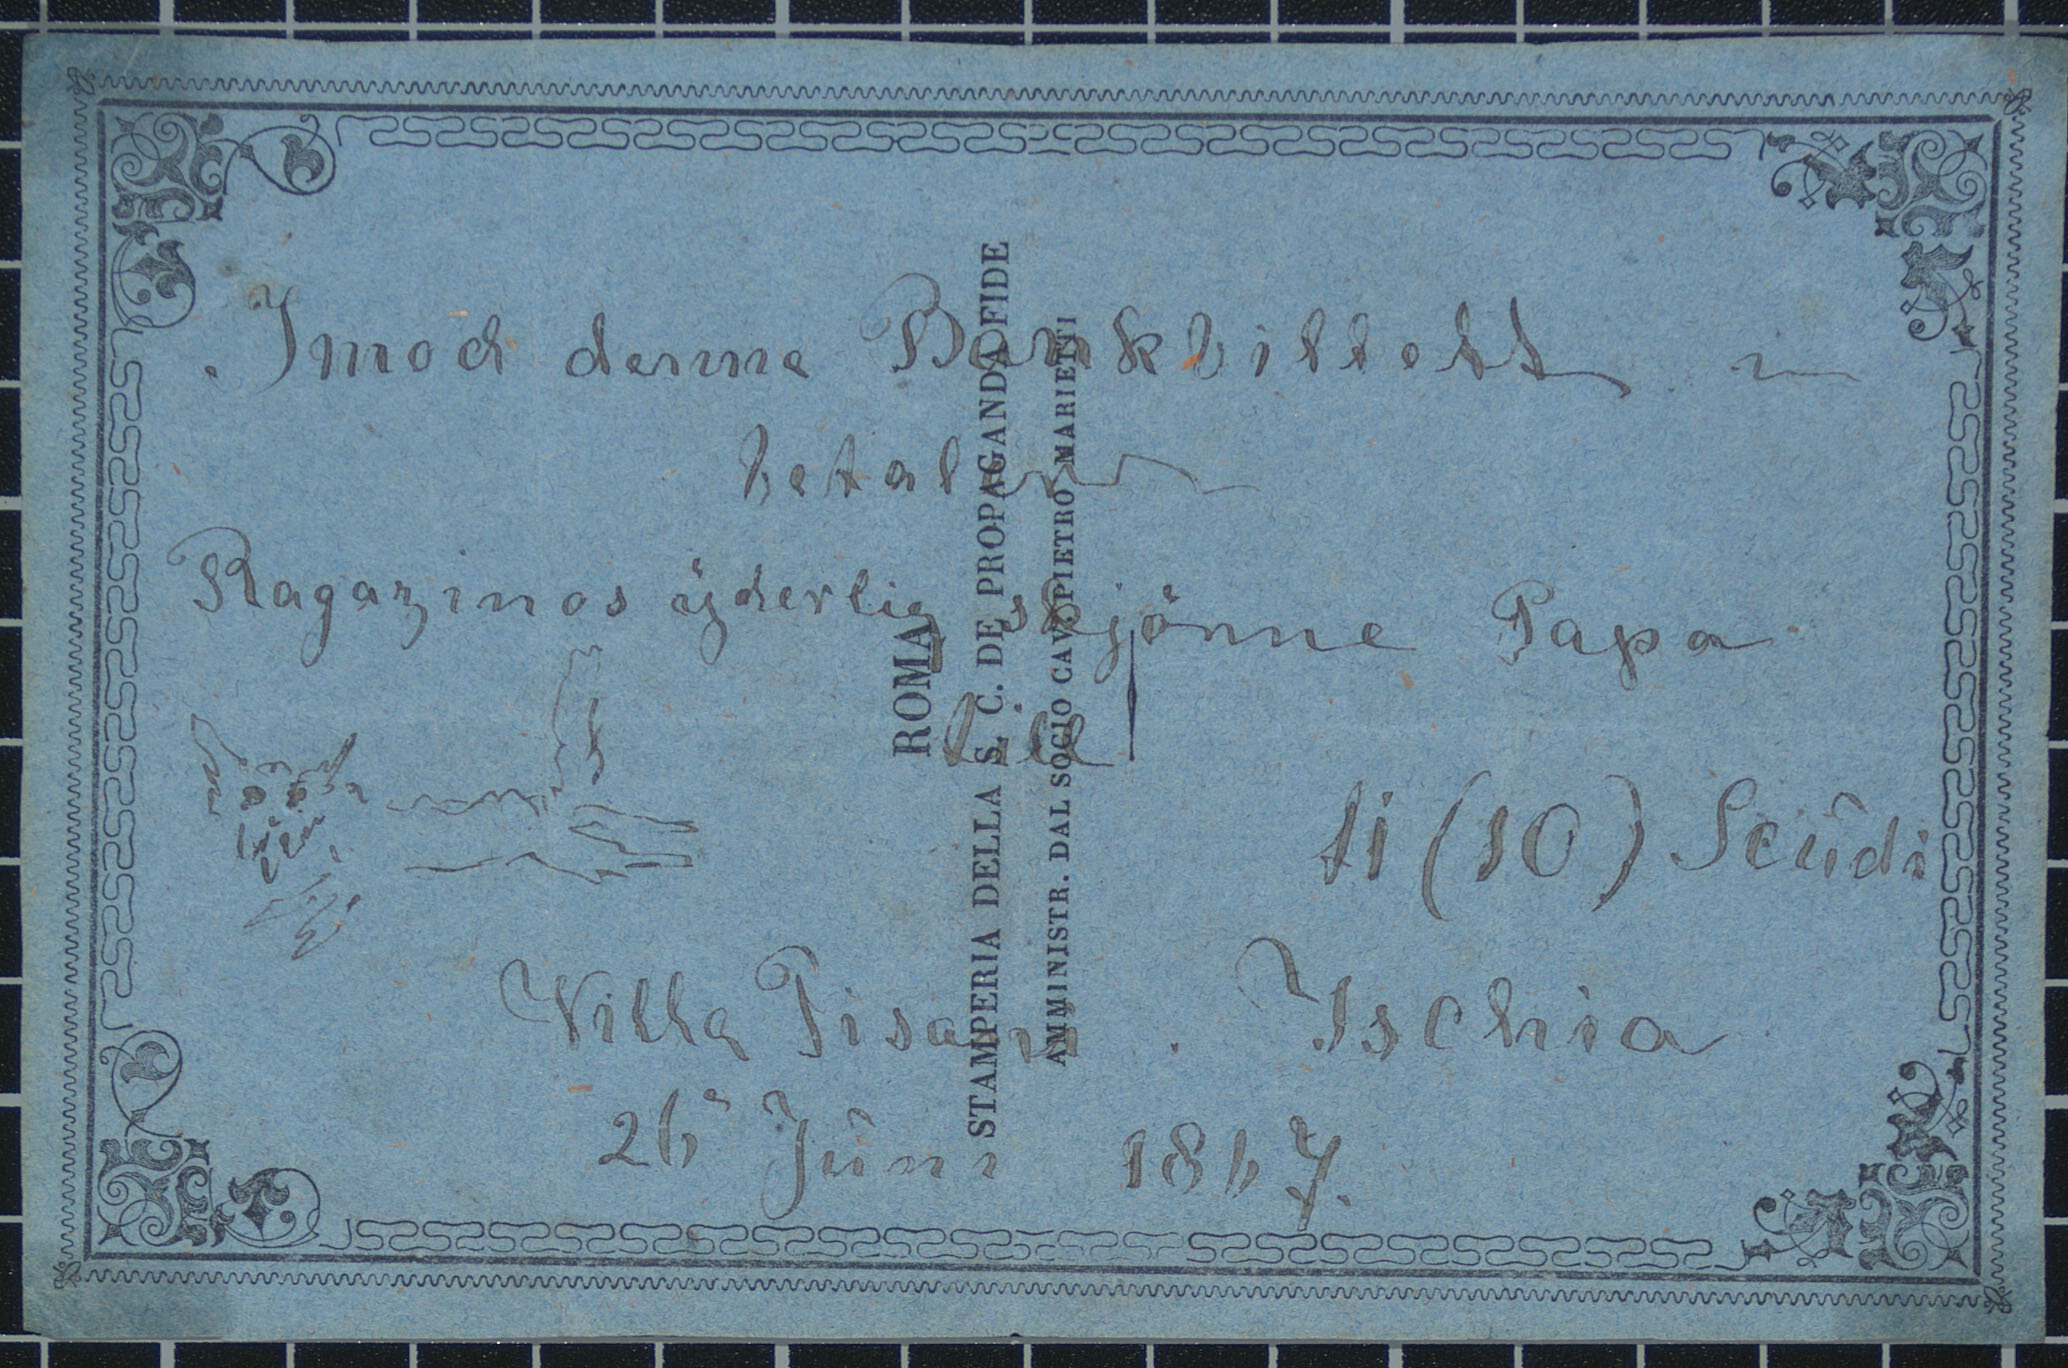 Imod denne Bankbillett
betaler
Ragazinos yderlig skjönne Papa
lill
ti (10) Scudi
Villa Pisani . Ischia
26 Juni 1867.
ROMA
STAMPERIA DELLA S. C. DE PROPAGANDA FIDE
AMMINISTR. DAL SOCIO CAV. PIETRO MARIETTI